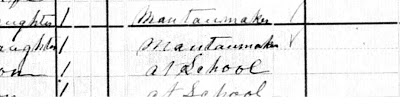 aughter / Mantaumaker
aughter / Mantaumaker
on / at School
at School